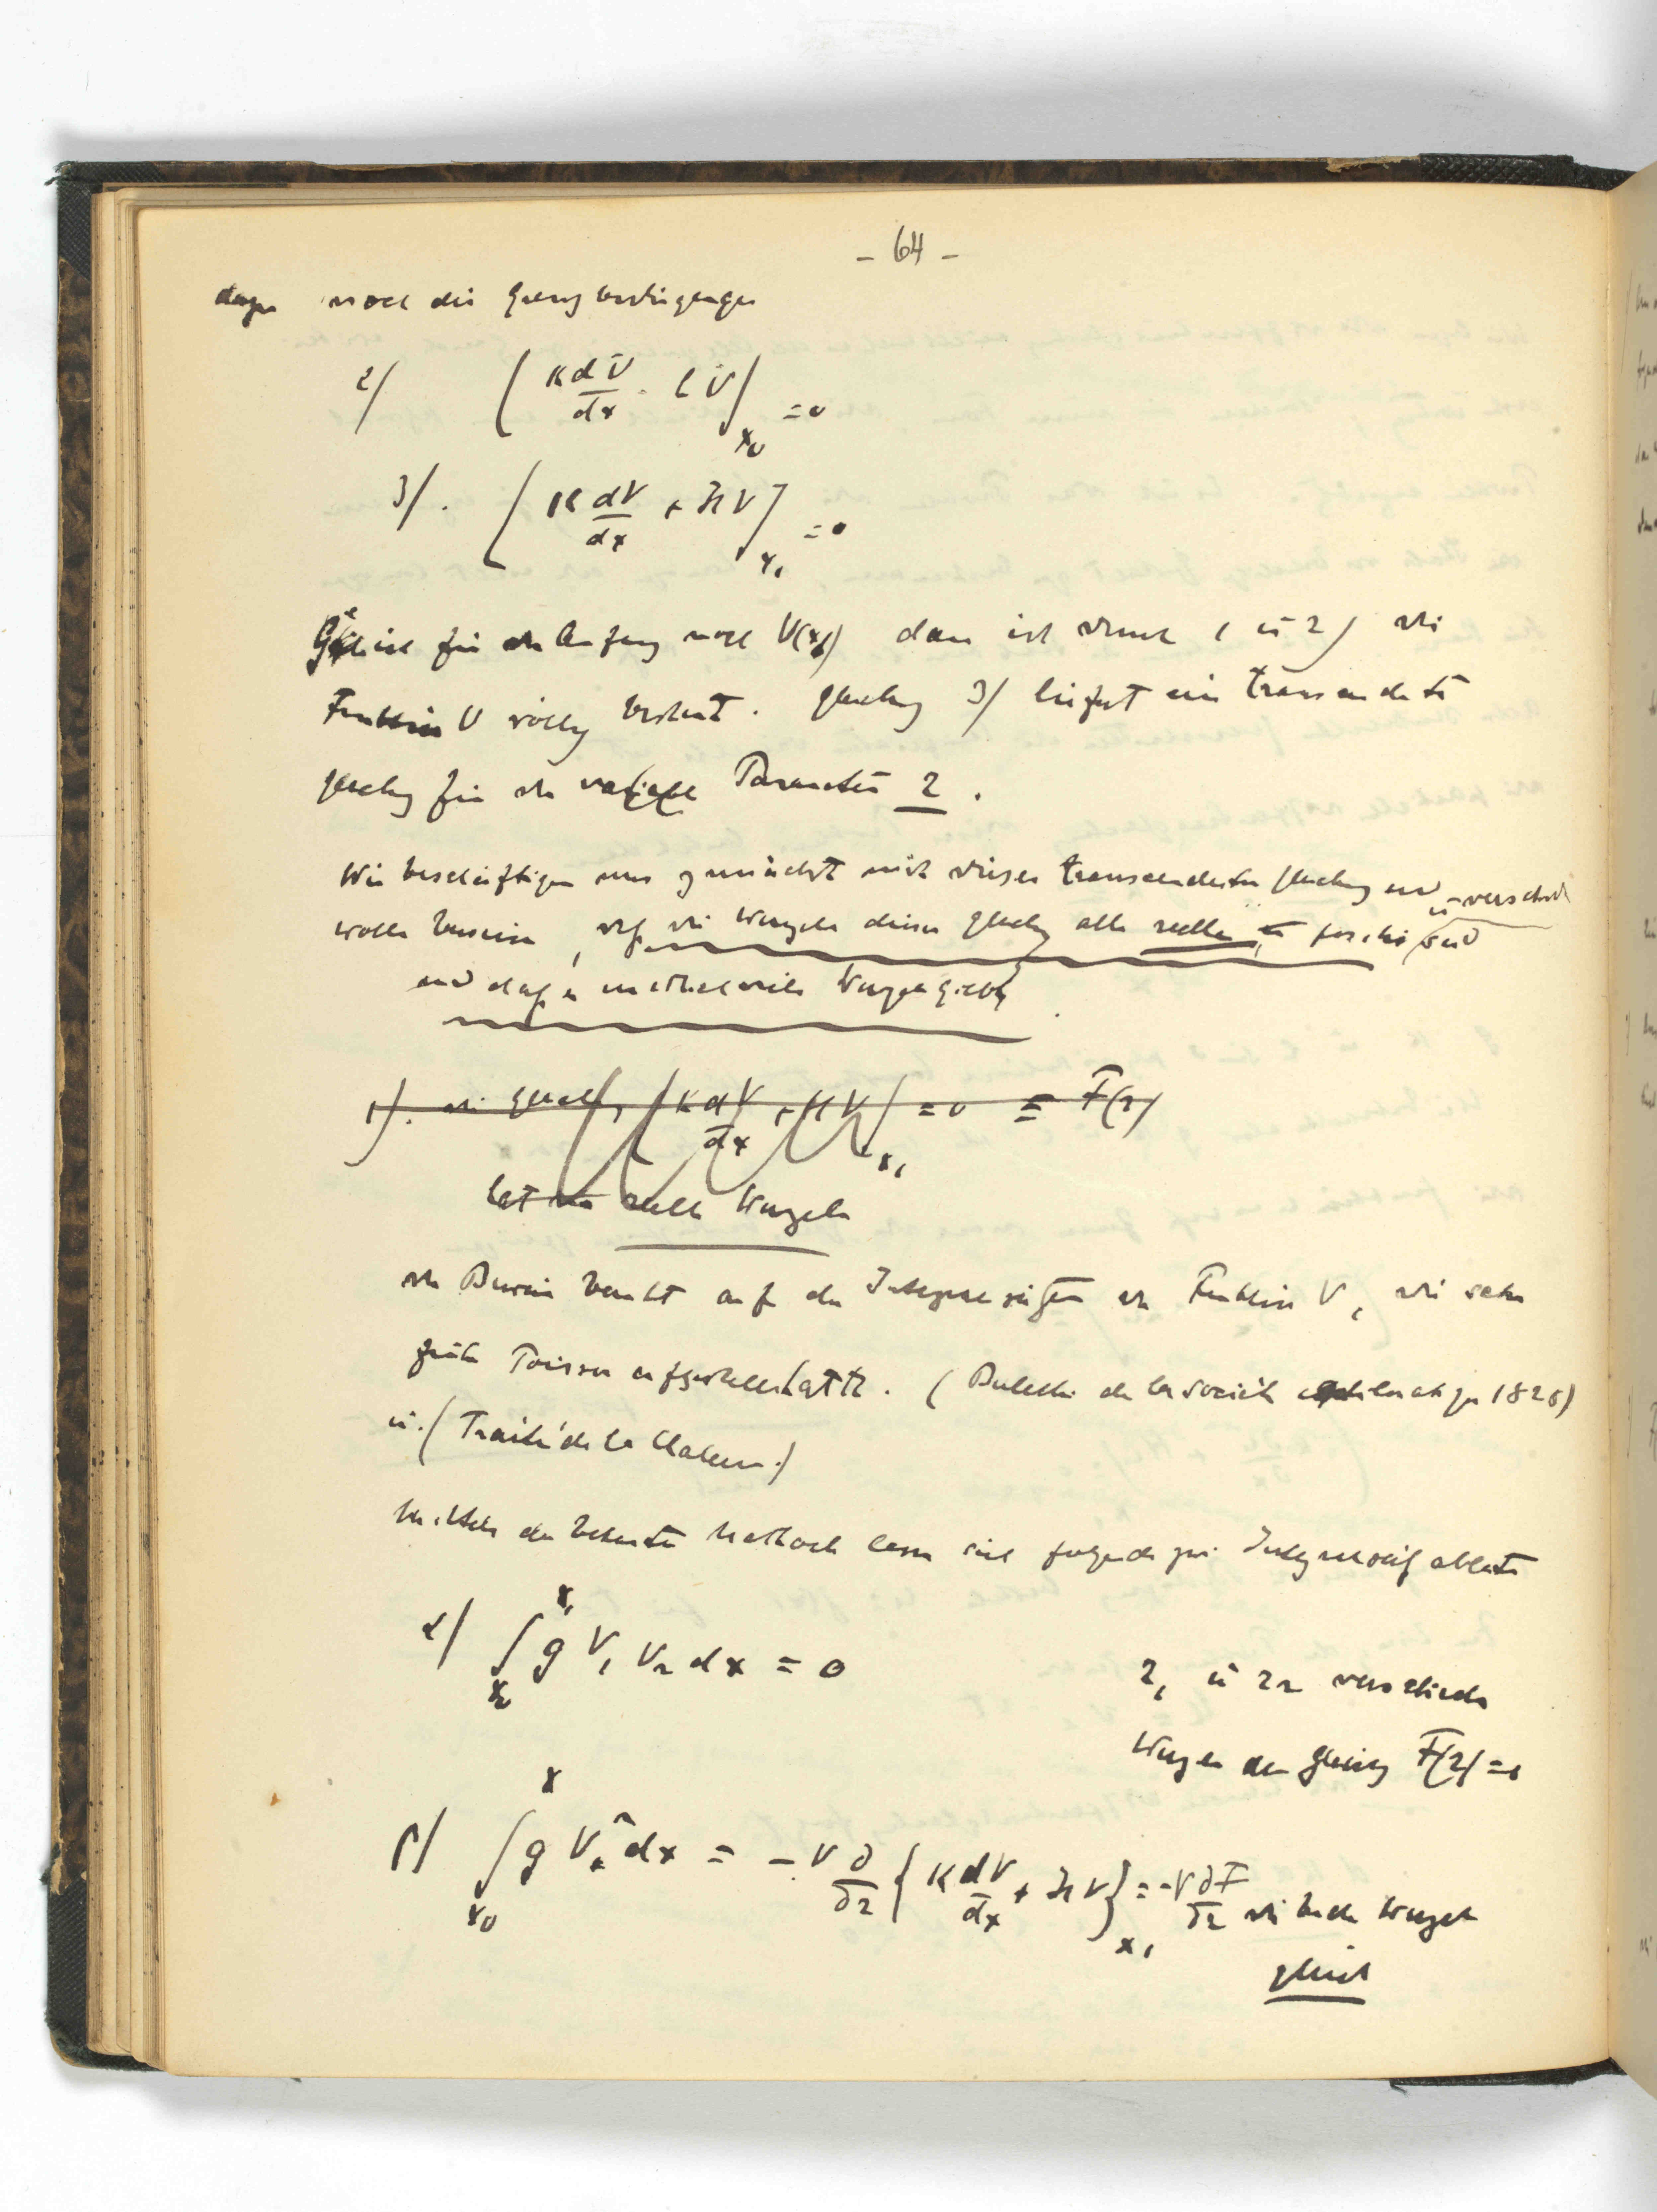 - 64 -
dazu noch die Grenzbedingungen
2) (K dV/dx - hV)x0 = 0
3). [K dV/dx + HV]x1 = 0
für den Anfang noch V(x0) dann ist durch 1 ū 2) die
Funktion V völlig bestimmt. Gleichung 3) liefert eine transcendente
Gleichung für den variable Parameter r.
Wir beschäftigen uns zunächst mit dieser transcendenten Gleichung und ū verschied
wollen beweisen, daß die Wurzeln dieser Gleichung alle reelle positiv sind
und daß es unendlich viele Wurzeln giebt.
1). die Gleichung (K dV/dx + HV)x1 = 0 = F(r)
hat reelle Wurzeln
der Beweis beruht auf den Integraleigenschaften der Funktion V, die schon
Poisson aufgestellt hatte. (Bulletin de la Société philomatique 1826)
ū. (Traité de la Chaleur.)
Mittels der bekannten Methode lassen sich folgende zwei Integralsätze ableiten
α) ∫x0^x1 g V1 V2 dx = 0
r1 ū r2 verschiedene
Wurzeln der Gleichung F(r) = 0
β) ∫x0^x g V²dx = - V ∂/∂r {K dV/dx + HV}x1 = -V ∂F/∂r die beiden Wurzeln
gleich